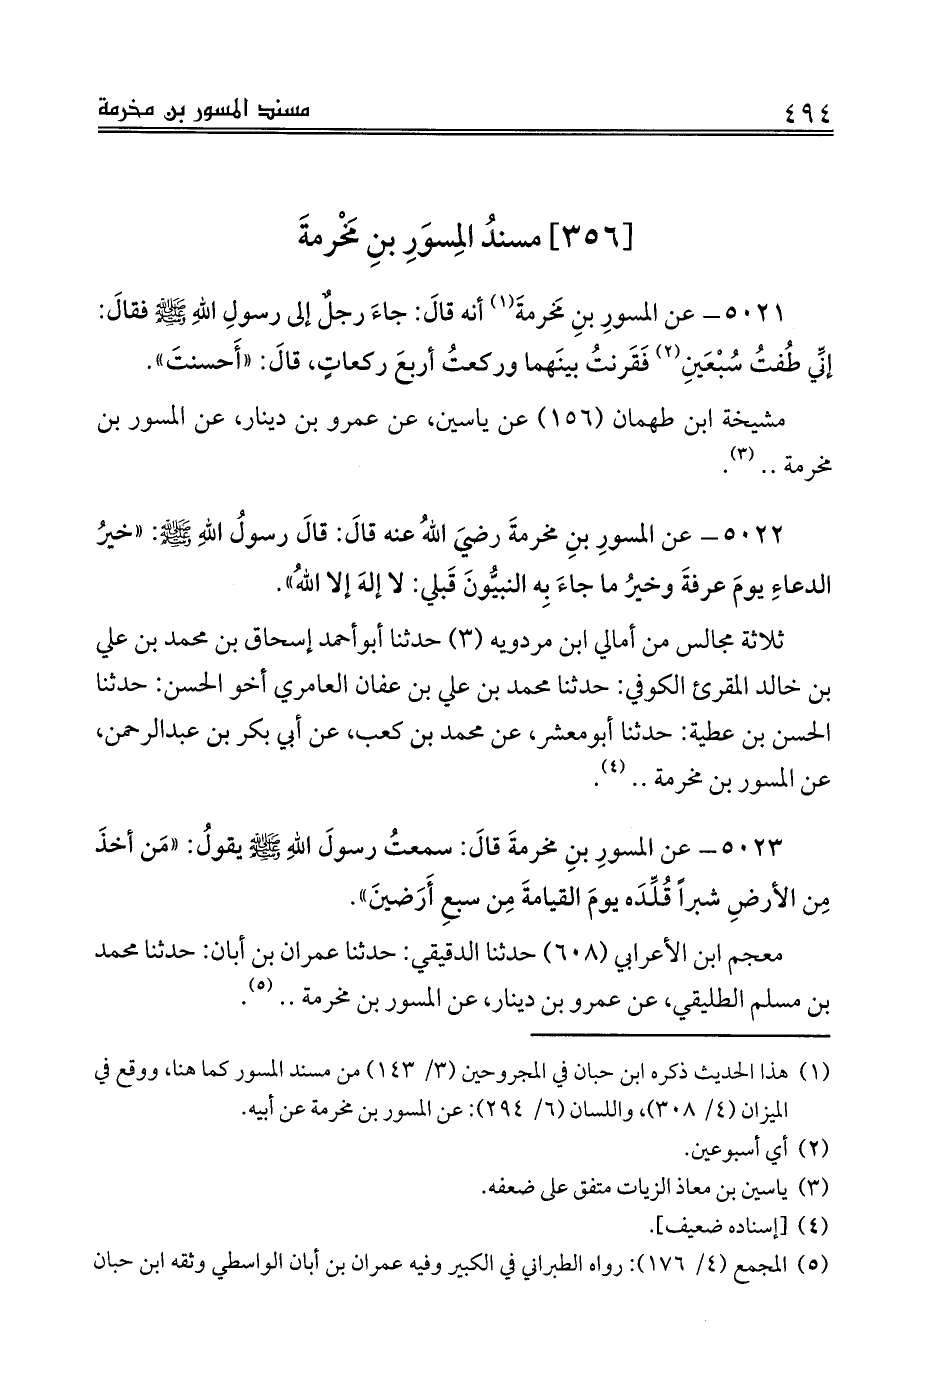 ٤٩٤ مسند المسور بن مخرمة
[٣٥٦] مسندُ المِسوَرِ بنِ مَخْرمةَ
٥٠٢١ – عن المسورِ بنِ مخرمةَ(١) أنه قالَ: جاءَ رجلٌ إلى رسولِ اللهِ ﷺ فقالَ:
إنِّي طُفتُ سُبْعَينِ(٢) فَقَرنتُ بينَهما وركعتُ أربعَ ركعاتٍ، قالَ: «أَحسنتَ».
مشيخة ابن طهمان (١٥٦) عن ياسين، عن عمرو بن دينار، عن المسور بن
مخرمة .. (٣).
٥٠٢٢ – عن المسورِ بنِ مخرمةَ رضيَ اللهُ عنه قالَ: قالَ رسولُ اللهِ ﷺ: «خيرُ
الدعاءِ يومَ عرفةَ وخيرُ ما جاءَ بِه النبيُّونَ قَبلي: لا إلهَ إلا اللهُ».
ثلاثة مجالس من أمالي ابن مردويه (٣) حدثنا أبوأحمد إسحاق بن محمد بن علي
بن خالد المقرئ الكوفي: حدثنا محمد بن علي بن عفان العامري أخو الحسن: حدثنا
الحسن بن عطية: حدثنا أبومعشر، عن محمد بن كعب، عن أبي بكر بن عبدالرحمن،
عن المسور بن مخرمة .. (٤).
٥٠٢٣ – عن المسورِ بنِ مخرمةَ قالَ: سمعتُ رسولَ اللهِ ﷺ يقولُ: «مَن أخذَ
مِن الأرضِ شبراً قُلِّدَه يومَ القيامةَ مِن سبعِ أَرَضينَ».
معجم ابن الأعرابي (٦٠٨) حدثنا الدقيقي: حدثنا عمران بن أبان: حدثنا محمد
بن مسلم الطليقي، عن عمرو بن دينار، عن المسور بن مخرمة .. (٥).
(١) هذا الحديث ذكره ابن حبان في المجروحين (٣/ ١٤٣) من مسند المسور كما هنا، ووقع في
الميزان (٤/ ٣٠٨)، واللسان (٦/ ٢٩٤): عن المسور بن مخرمة عن أبيه.
(٢) أي أسبوعين.
(٣) ياسين بن معاذ الزيات متفق على ضعفه.
(٤) [إسناده ضعيف].
(٥) المجمع (٤/ ١٧٦): رواه الطبراني في الكبير وفيه عمران بن أبان الواسطي وثقه ابن حبان